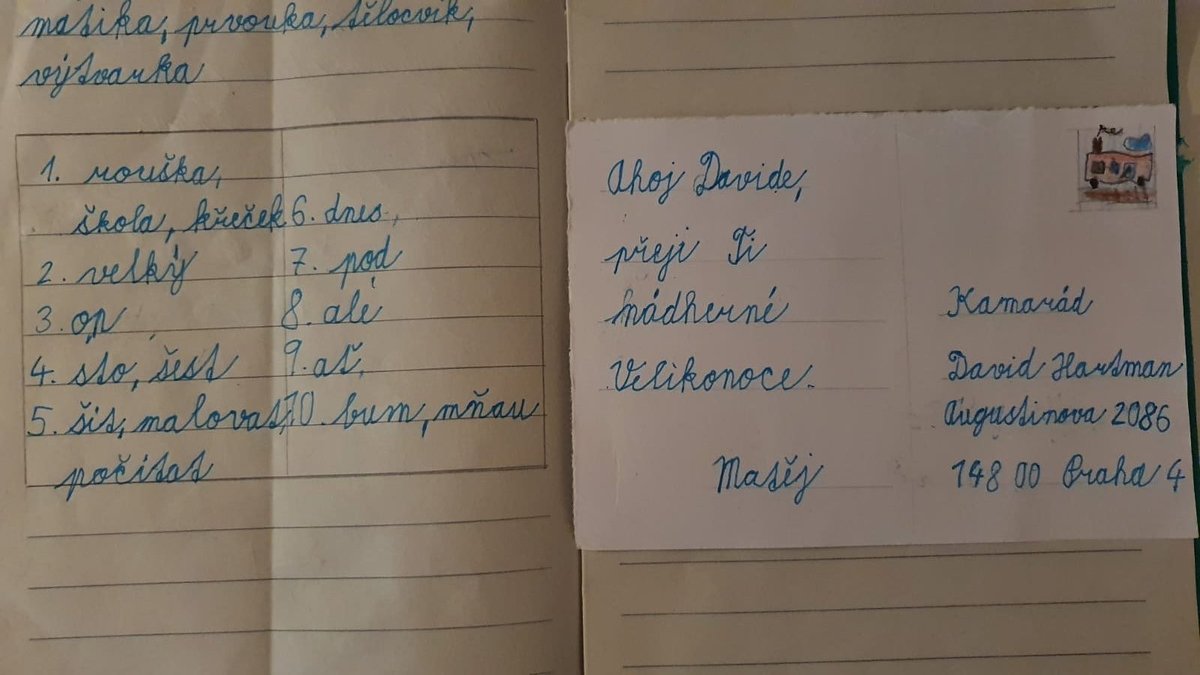 matika, prvouka, tělocvik,
výtvarka
1. rouška,
škola, křeček
2. velký
3. on
4. sto, šest
5. šít, malovat,
počítat
6. dnes,
7. pod
8. ale
9. ať,
10. bum, mňau
Ahoj Davide,
přeji Ti
nádherné
Velikonoce.
Matěj
Kamarád
David Hartman
Augustinova 2086
148 00 Praha 4